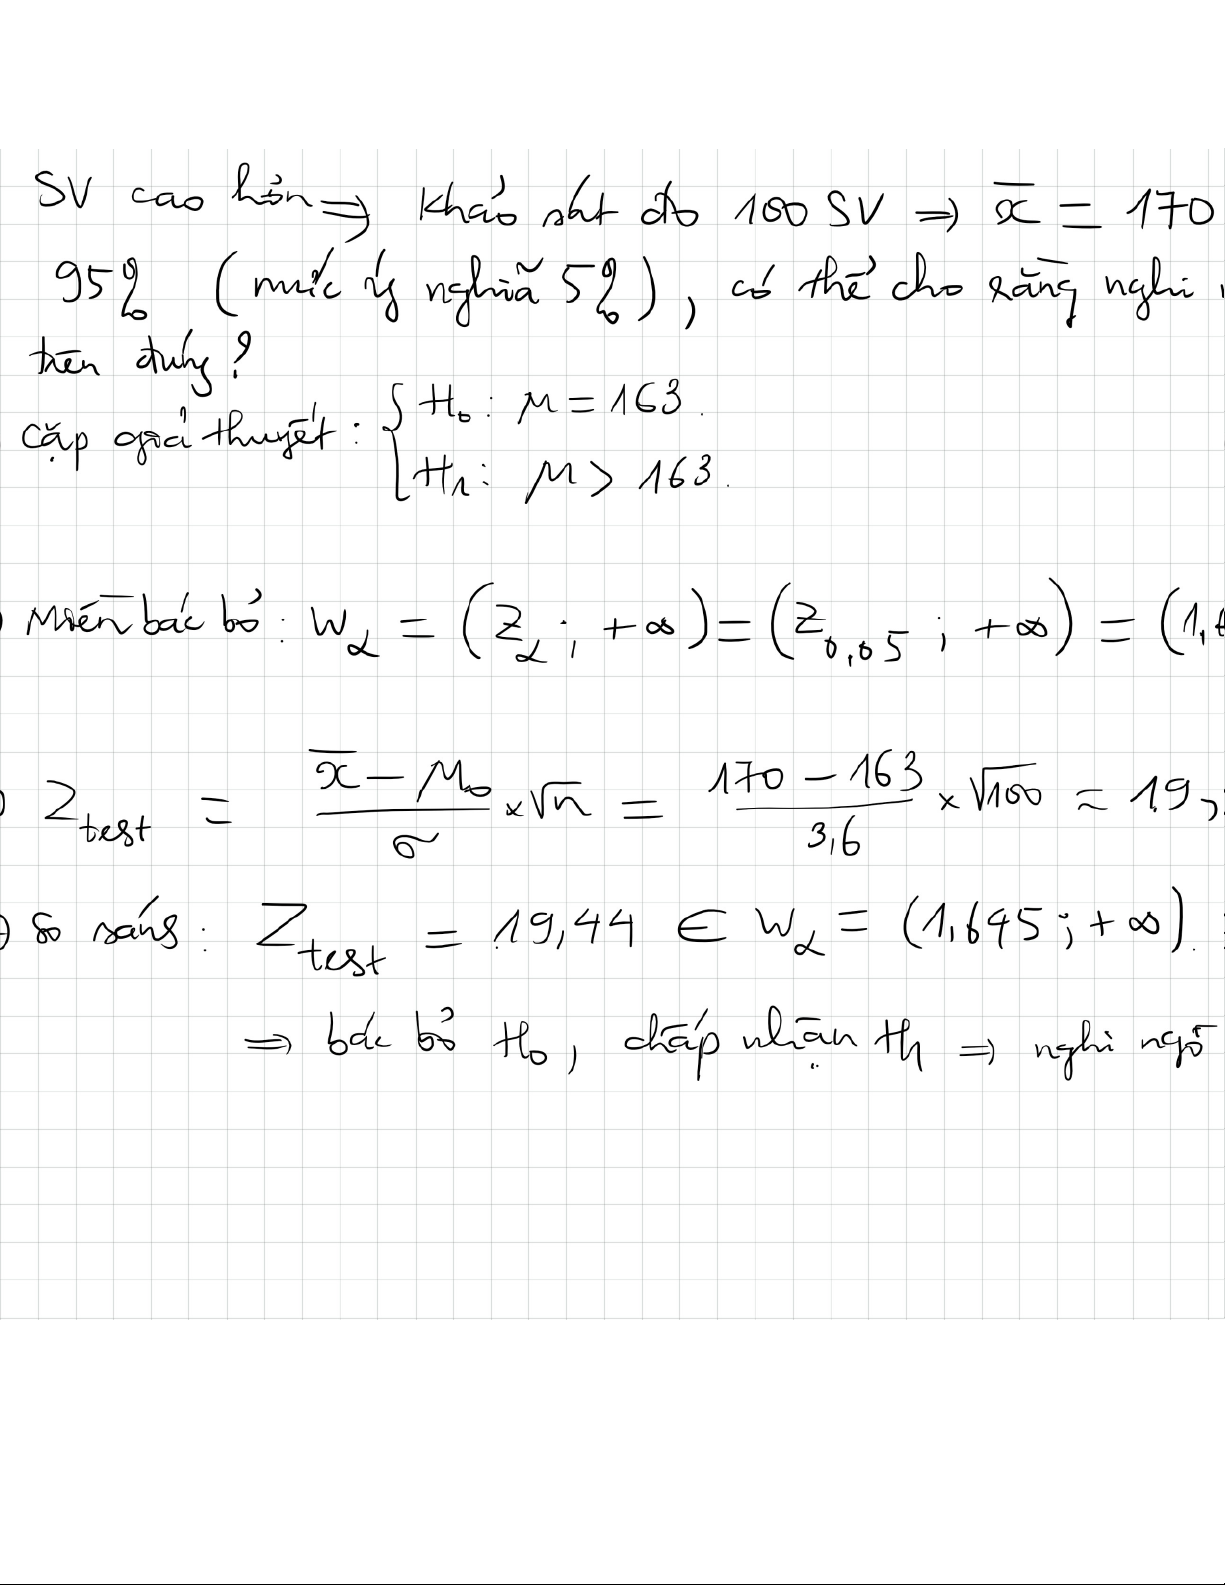 SV cao hơn ⇒ Khảo sát đo 100 SV ⇒ x̄ = 170
95% (mức ý nghĩa 5%), có thể cho rằng nghi
trên đúng?
cặp giả thuyết: { H₀: μ = 163.
H₁: μ > 163.
Miền bác bỏ: W_α = (Z_α; +∞) = (Z_0,05; +∞) = (1,6
Z_test = (x̄ − μ₀)/σ × √n = (170 − 163)/3,6 × √100 ≈ 19,
So sánh: Z_test = 19,44 ∈ W_α = (1,645; +∞).
⇒ bác bỏ H₀, chấp nhận H₁ ⇒ nghi ngờ